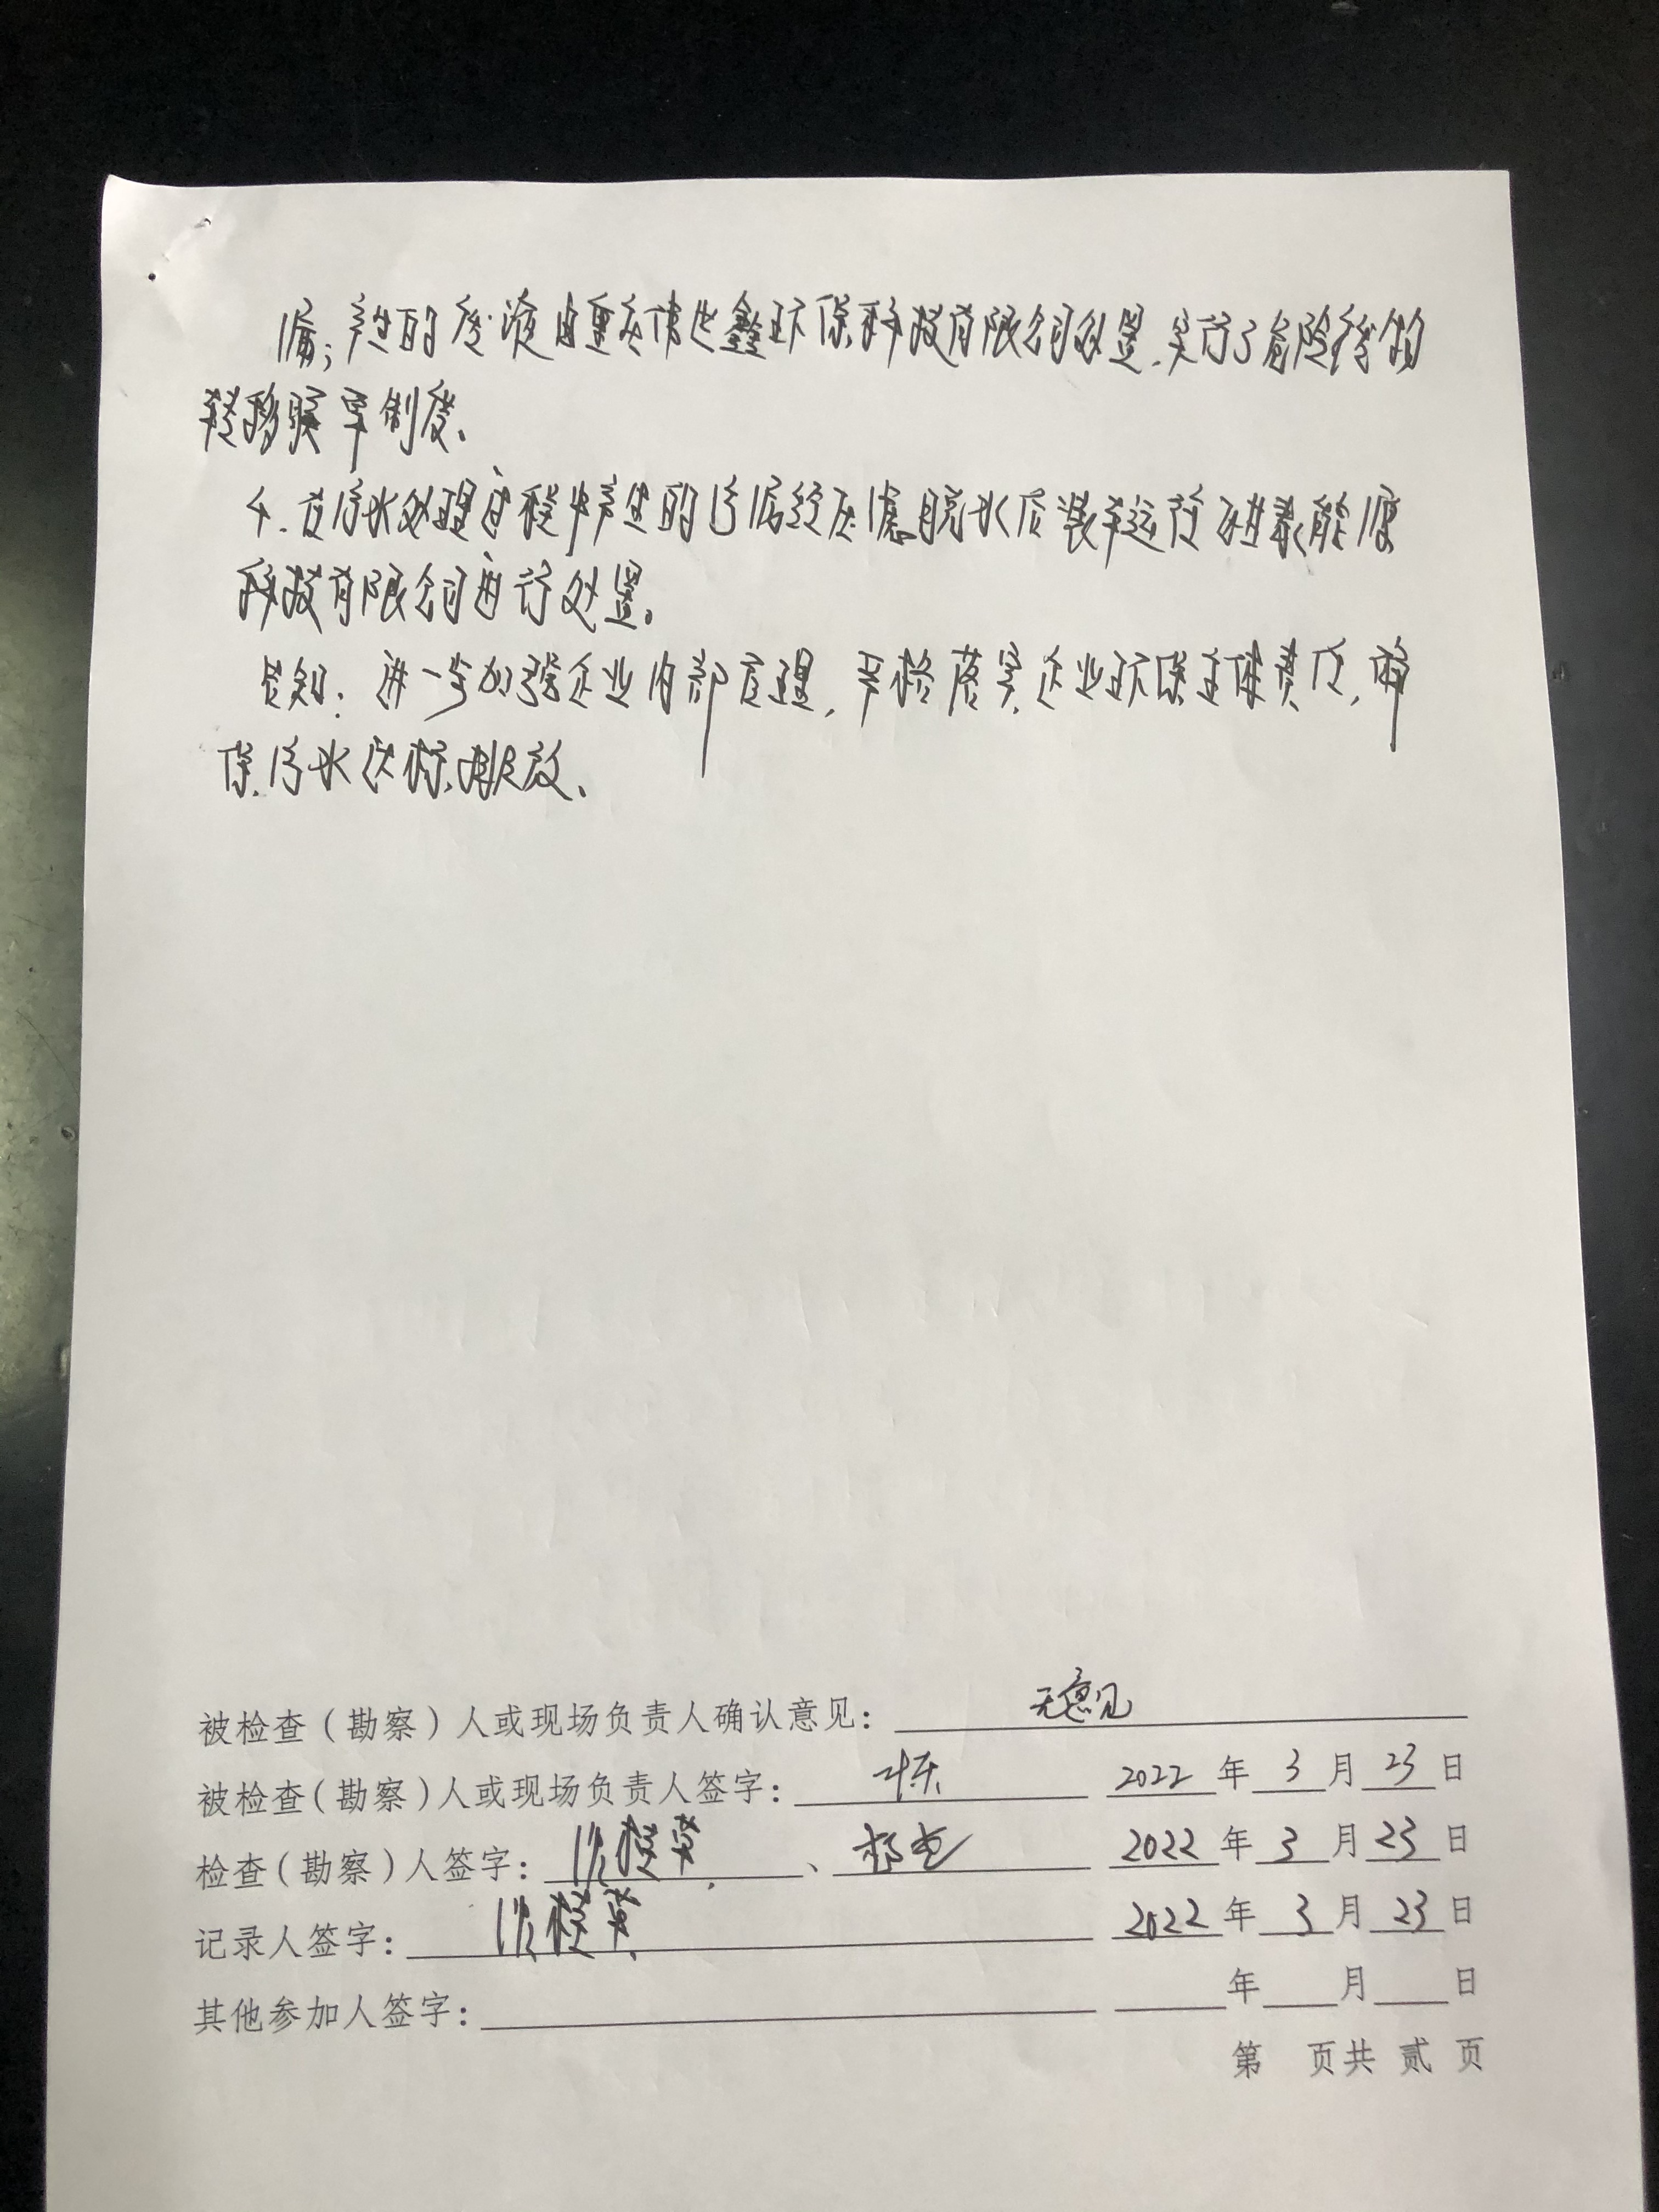 漏；产生的废液由重庆伟世鑫环保科技有限公司处置，实行了危险废物
转移联单制度。
4.在污水处理过程中产生的污泥经压滤脱水后装车运往能源
科技有限公司进行处置。
告知：进一步加强企业内部管理，严格落实企业环保主体责任，确
保污水达标排放。
被检查（勘察）人或现场负责人确认意见：无意见
被检查（勘察）人或现场负责人签字： 2022年3月23日
检查（勘察）人签字：、 2022年3月23日
记录人签字： 2022年3月23日
其他参加人签字： 年 月 日
第 页共 贰 页